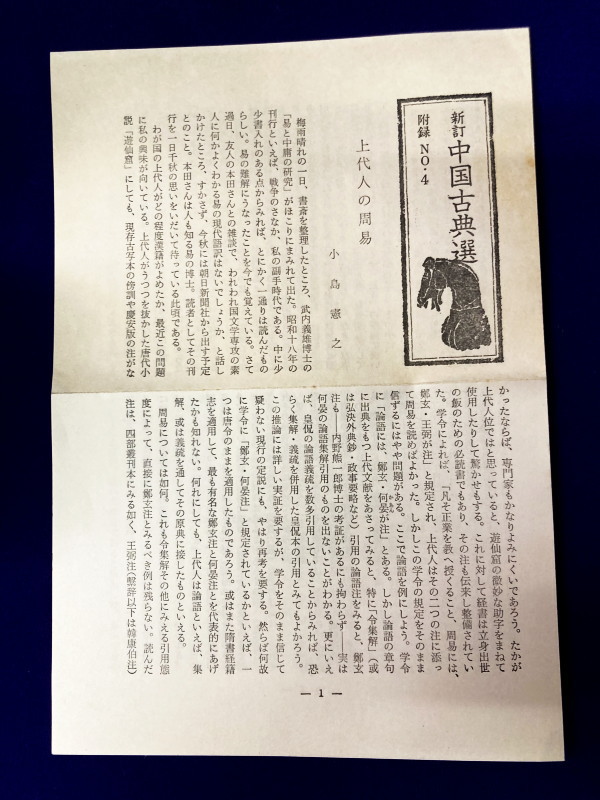 新訂 中国古典選
附録 NO・4
上代人の周易
小島憲之
梅雨晴れの一日、書斎を整理したところ、武内義雄博士の
「易と中庸の研究」がほこりにまみれて出た。昭和十八年の
刊行といえば、戦争のさなか、私の副手時代である。中に少
少書入れのある点からみれば、とにかく一通りは読んだもの
らしい。易の難解にうなったことを今でも覚えている。さて
過日、友人の本田さんとの雑談で、われわれ国文学専攻の素
人に何かよくわかる易の現代語訳はないでしょうか、と話し
かけたところ、すかさず、今秋には朝日新聞社から出す予定
とのこと。本田さんは人も知る易の博士。読者としてその刊
行を一日千秋の思いをいだいて待っている此頃である。
わが国の上代人がどの程度漢籍がよめたか、最近この問題
に私の興味が向いている。上代人がうつつを抜かした唐代小
説「遊仙窟」にしても、現存古写本の傍訓や慶安版の注がな
かったならば、専門家もかなりよみにくいであろう。たかが
上代人位ではと思っていると、遊仙窟の微妙な助字をまねて
使用したりして驚かせもする。これに対して経書は立身出世
の飯のための必読書でもあり、その注も伝来し整備されてい
た。学令によれば、「凡そ正業を教へ授くること、周易には、
鄭玄・王弼が注」と規定され、上代人はその二つの注に添っ
て周易を読めばよかった。しかしこの学令の規定をそのまま
信ずるにはやや問題がある。ここで論語を例にしよう。学令
に「論語には、鄭玄・何晏が注」とある。しかし論語の章句
に出典をもつ上代文献をあさってみると、特に「令集解」(或
は弘決外典鈔・政事要略など)引用の論語注をみると、鄭玄
注も――内野熊一郎博士の考証があるにも拘わらず――実は
何晏の論語集解引用のものを出ないことがわかる。更にいえ
ば、皇侃の論語義疏を数多引用していることからみれば、恐
らく集解・義疏を併用した皇侃本の引用とみてもよかろう。
この推論には詳しい実証を要するが、学令をそのまま信じて
疑わない現行の定説にも、やはり再考を要する。然らば何故
に学令に「鄭玄・何晏注」と規定されているかといえば、一
つは唐令のままを適用したものであろう。或はまた隋書経籍
志を適用して、最も有名な鄭玄注と何晏注とを代表的にあげ
たかも知れない。何れにしても、上代人は論語といえば、集
解、或は義疏を通してその原典に接したものといえる。
周易については如何。これも令集解その他にみえる引用態
度によって、直接に鄭玄注とみるべき例は残らない。読んだ
注は、四部叢刊本にみる如く、王弼注(繋辞以下は韓康伯注)
― 1 ―